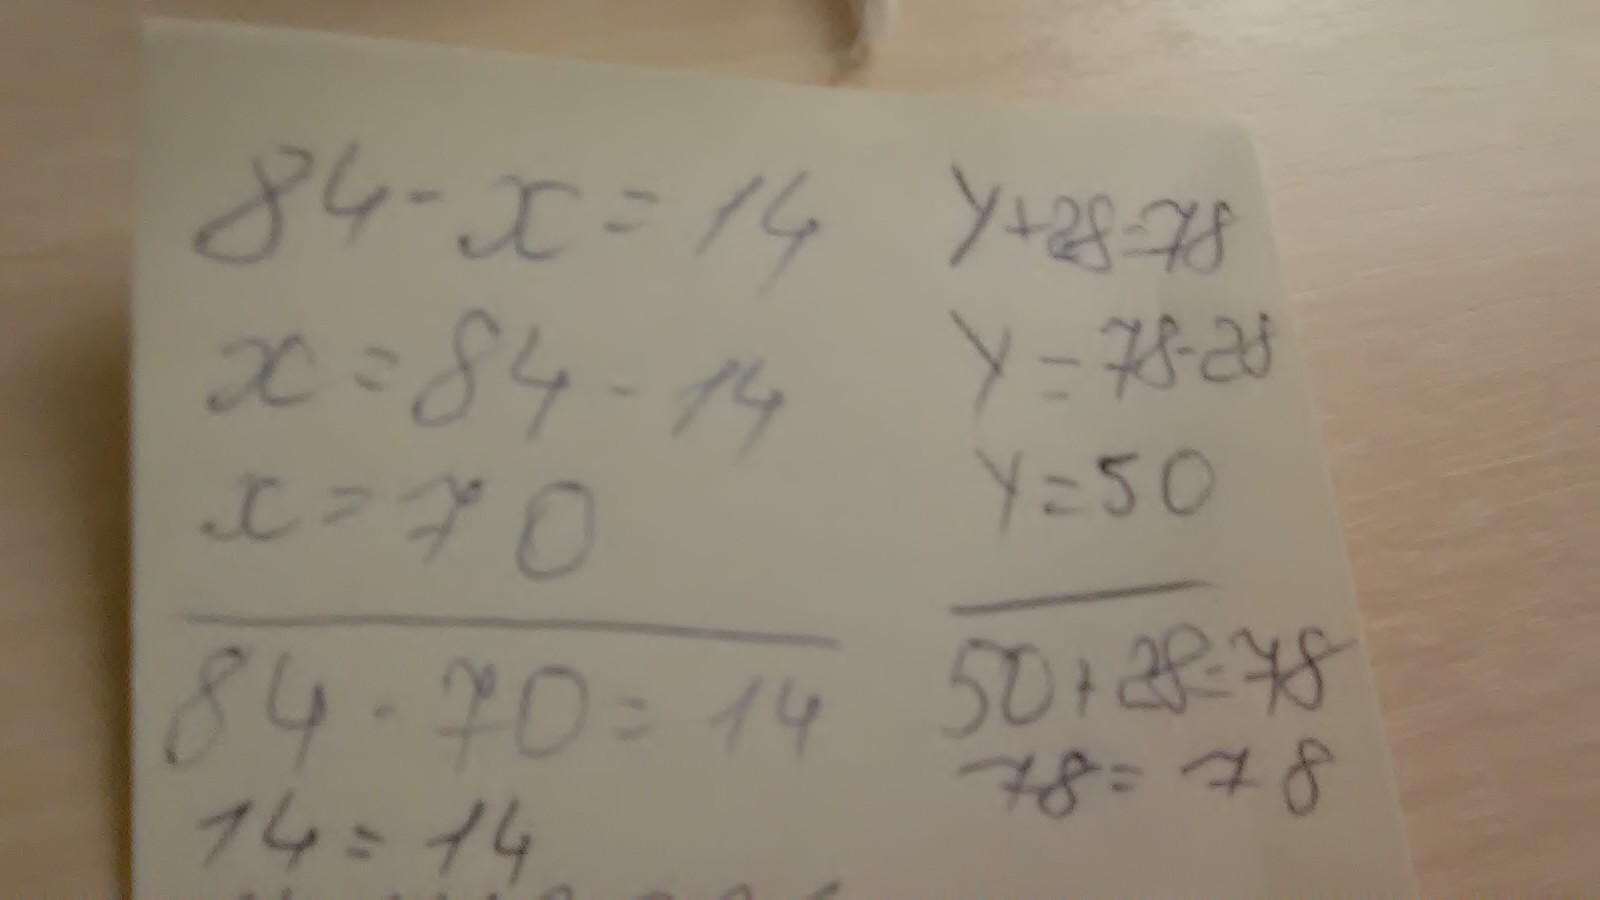 84 - x = 14
x = 84 - 14
x = 70
84 - 70 = 14
14 = 14
y + 28 = 78
y = 78 - 28
y = 50
50 + 28 = 78
78 = 78